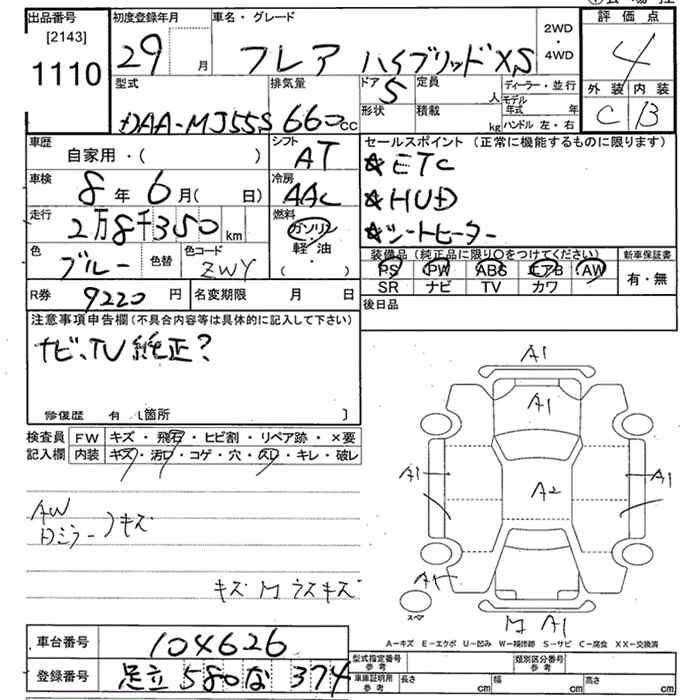 出品番号
[2143]
1110
初度登録年月
29 月
車名・グレード
フレア ハイブリッドXS
2WD
・
4WD
評価点
4
外装 内装
C B
型式
DAA-MJ55S
排気量
660cc
ドア
5
定員
人
形状
積載
kg
ディーラー・並行
モデル年式 年
ハンドル 左・右
車歴
自家用・( )
シフト
AT
車検
8年 6月( 日)
冷房
AAC
走行
2万8千350km
燃料
ガソリン
軽・油
( ・ )
色
ブルー
色替
色コード
ZWY
R券 9220円
名変期限 月 日
セールスポイント (正常に機能するものに限ります)
★ETC
★HUD
★シートヒーター
装備品(純正品に限り〇をつけてください)
PS PW ABS エアB AW
SR ナビ TV カワ
新車保証書
有・無
後日品
注意事項申告欄(不具合内容等は具体的に記入して下さい)
ナビ、TV純正?
修復歴 有 [箇所 ]
検査員 FW キズ・飛石・ヒビ割・リペア跡・×要
記入欄 内装 キズ・汚レ・コゲ・穴・スレ・キレ・破レ
AW
Dミラー )キズ
キズ M ウスキズ
A1
A1
A1
A2
A1
スペア
A1
A-キズ E-エクボ U-凹み W-補修跡 S-サビ C-腐食 XX-交換済
車台番号 104626
登録番号 足立 580 な 374
型式指定番号
参考
類別区分番号
参考
車庫証明用
参考
長さ cm
幅 cm
高さ cm